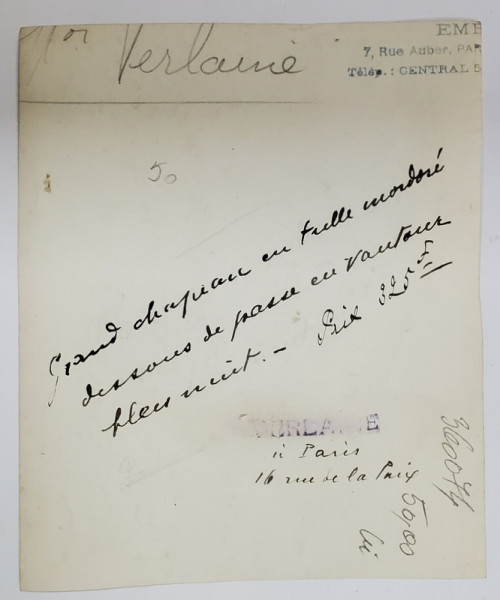 Verlaine
EME
7, Rue Auber, PAR
Télép.: CENTRAL 5
50
Grand chapeau en tulle mordoré
dessous de passe en vautour
bleu nuit. — Prix 325 F
à Paris
16 rue de la Paix
360074
5000